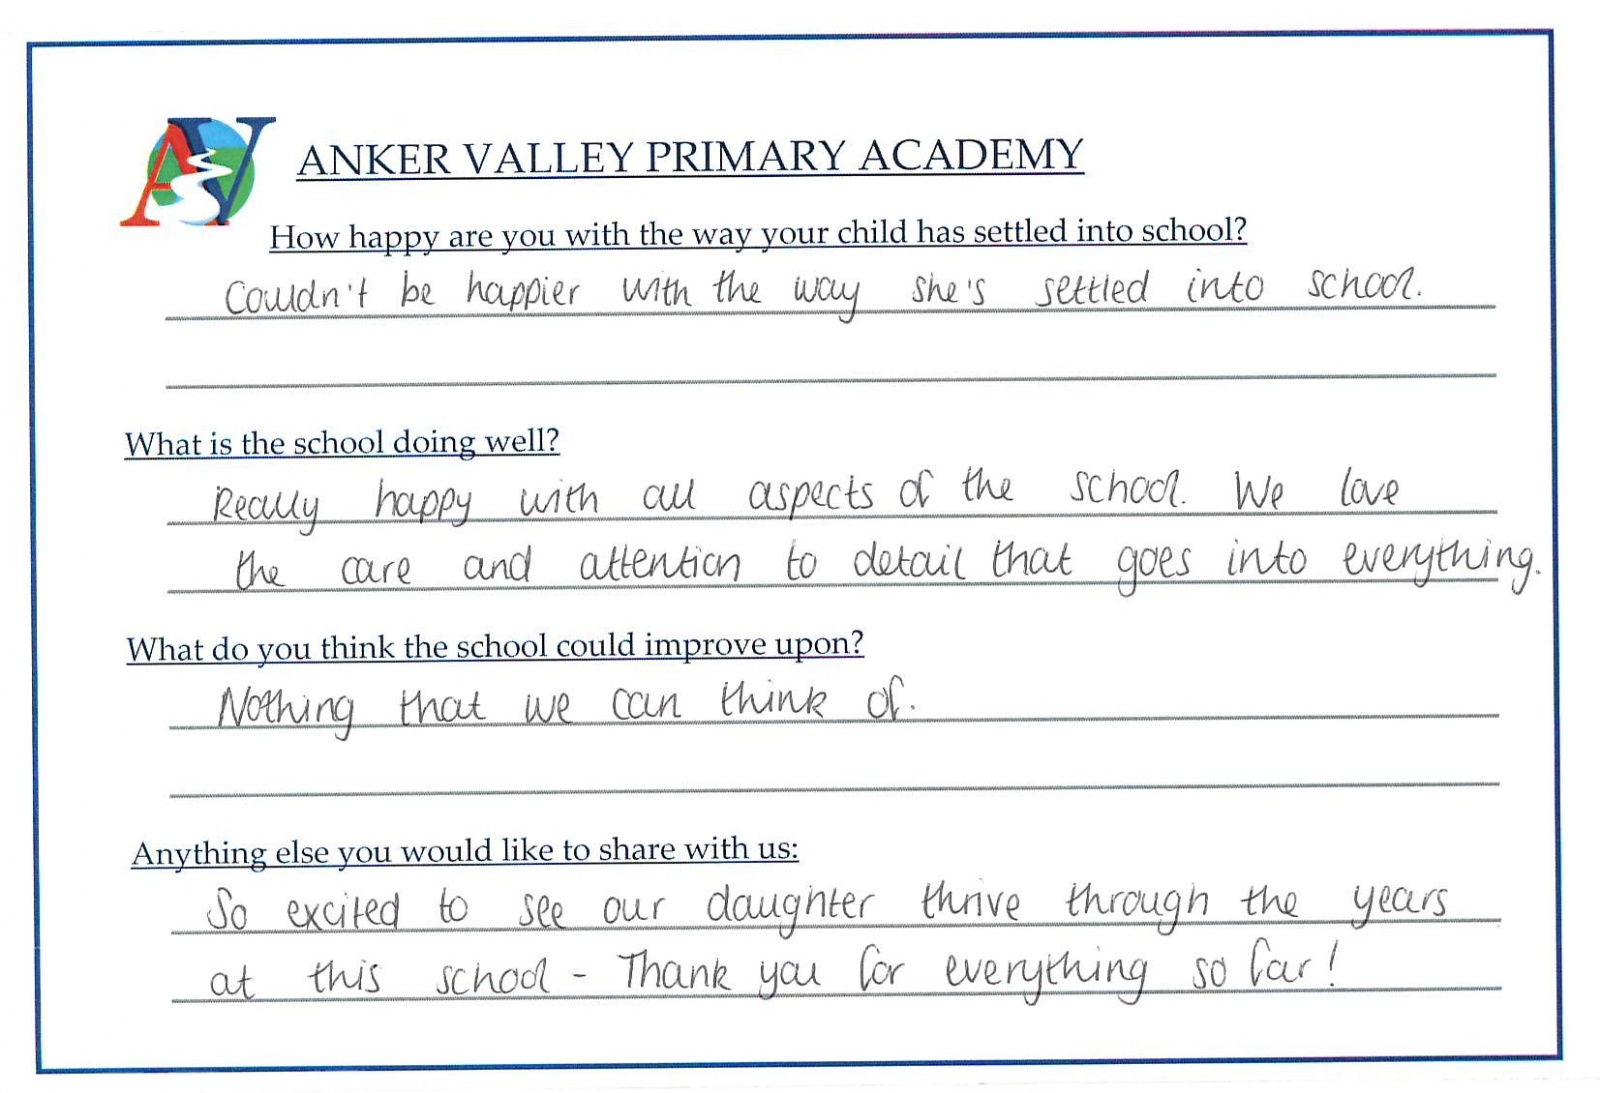 AV
ANKER VALLEY PRIMARY ACADEMY
How happy are you with the way your child has settled into school?
Couldn't be happier with the way she's settled into school.
What is the school doing well?
Really happy with all aspects of the school. We love
the care and attention to detail that goes into everything.
What do you think the school could improve upon?
Nothing that we can think of.
Anything else you would like to share with us:
So excited to see our daughter thrive through the years
at this school - Thank you for everything so far!